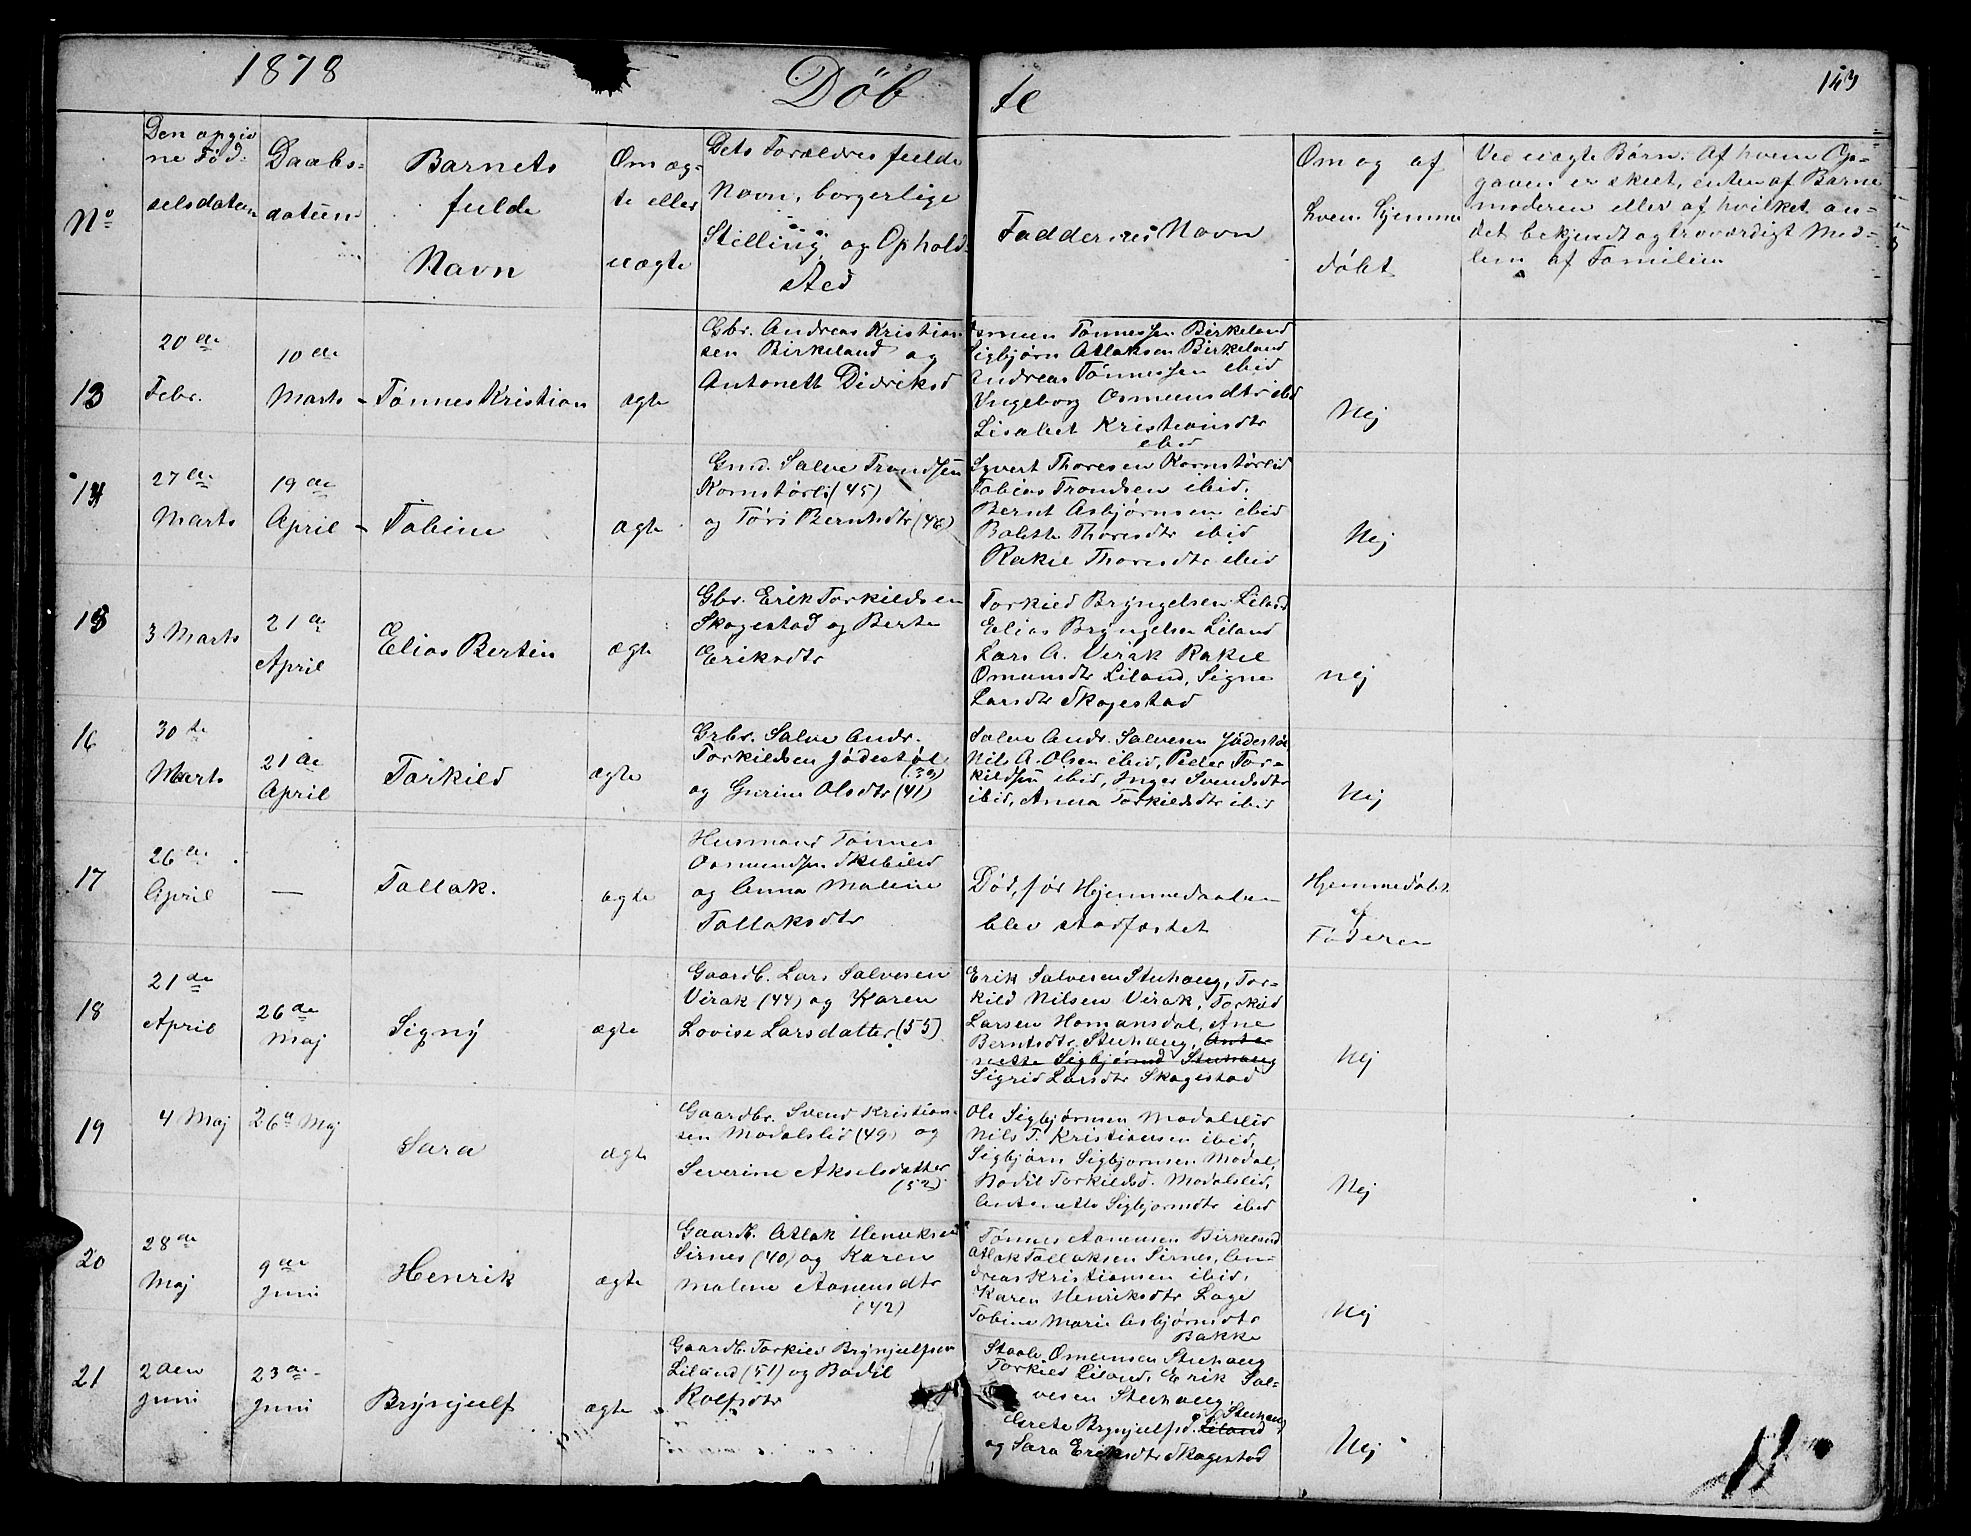 1878 Döb te 143
No
Den opgiv
ne Fød-
selsdatum
Daabs-
datum
Barnets
fulde
Navn
Om æg-
te eller
uægte
Dets Forældres fulde
Navn, borgerlige
Stilling og Ophold-
sted
Faddernes Navn
Om og af
hvem hjemme
døbt
Ved uægte Børn. Af hvem Op-
gaven er skeet, enten af Barne
moderen eller af hvilket an-
det bekjendt og troværdigt Med-
lem af Familien
13
20de
Febr.
10de
Marts
Tønnes Kristian
ægte
Gbr. Andreas Kristian
sen Birkeland og
Antonette Didriksd
Osmun Tønnessen Birkeland
Sigbjørn Atlaksen Birkeland
Andreas Tønnessen ibid
Ingeborg Osmunsdtr ibd
Lisabet Kristiansdtr
ibid
Nej
14
27de
Marts
19de
April
Tobine
ægte
Gmd. Salve Trondsen
Kornstørli (45)
og Tori Berntsdtr (46)
Syvert Thoresen Kornstørlid
Tobias Trondsen ibid,
Bernt Asbjørnsen ibid
Bolette Thoresdtr ibid
Rakel Thoresdtr ibid
Nej
15
3 Marts
21de
April
Elias Bertin
ægte
Gbr. Erik Torkildsen
Skogestad og Berte
Eriksdtr
Torkild Bryngelsen Liland
Elias Bryngelsen Liland
Lars A. Virak Rakel
Omundsdtr Liland, Signe
Larsdtr Skogestad
nej
16
30te
Marts
21de
April
Torkild
ægte
Grbr. Salve Andr.
Torkildsen Jødestøl
(39)
og Gurine Olsdtr (41)
Salve Andr. Salvesen Jødestøl
Nils A. Olsen ibid, Peder Tor-
kildsen ibid, Inger Svendsdtr
ibid, Anna Torkildsdtr ibid
Nej
17
26de
April
—
Tallak.
ægte
Husmand Tønnes
Osmundsen Skibelid
og Anna Malene
Tallaksdtr
Død, før Hjemmedaaben
blev stadfæstet
Hjemmedøbt
af
Faderen
18
21de
April
26de
Maj
Signy
ægte
Gaardb. Lars Salvesen
Virak (44) og Karen
Lovise Larsdatter (55)
Erik Salvesen Stuhaug, Tor-
kild Nilsen Virak, Torkild
Larsen Homansdal, Ane
Berntsdtr Stuhaug, Anto-
nette Sigbjørnsd Stuhaug
Sigrid Larsdtr Skogestad
Nej
19
4 Maj
26de Maj
Sara
ægte
Gaardbr. Svend Kristian-
sen Modalslid (49) og
Severine Akselsdatter
(52)
Ole Sigbjørnsen Modalslid
Nils T. Kristiansen ibid,
Sigbjørn Sigbjørnsen Modal,
Bodil Torkildsd. Modalslid,
Antonette Sigbjørnsdtr ibid
Nej
20
28de
Maj
9de
Juni
Henrik
ægte
Gaardb. Atlak Henriksen
Sirnes (40) og Karen
Malene Aanensdtr
(42)
Tønnes Aanensen Birkeland
Atlak Tallaksen Sirnes, An-
dreas Kristiansen ibid,
Karen Henriksdtr Lage
Tobine Marie Asbjørnsdtr
Bakke
Nej
21
2den
Juni
23de
Juni
Brynjulf
ægte
Gaardb. Torkild Brynjulfsen
Liland (51) og Bodil
Rolfsdtr
Staale Omundsen Stuhaug
Torkild Liland, Erik Sal-
vesen Stuhaug,
Stuhaug
Grete Brynjulfsd. Liland
og Sara Eriksdtr Skogestad
Nej